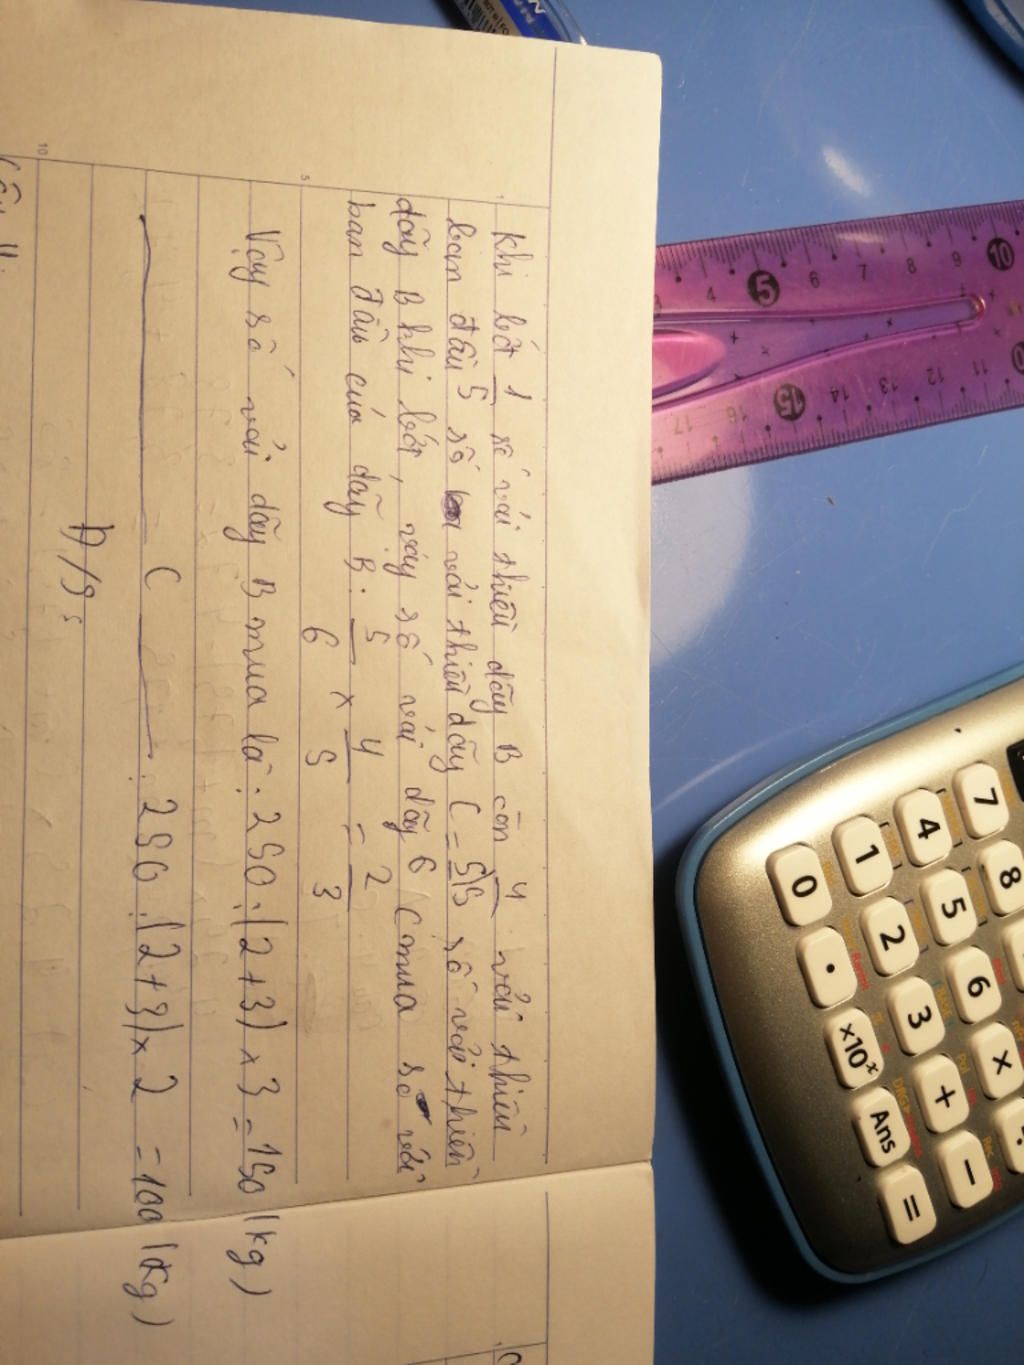 Khi bớt 1 số vải thiều dãy B còn 4 vải thiều
ban đầu 5 số vải thiều dãy C = 5/5 số vải thiều
dãy B khi bớt, vậy số vải dãy 6 C mua số vải
ban đầu của dãy B: 5/6 x 4/5 = 2/3
Vậy số vải dãy B mua là: 250:(2+3) x 3 = 150 (kg)
C : 250:(2+3) x 2 = 100 (kg)
Đ/S:
10
5
3 4 5 6 7 8 9 10
17 16 15 14 13 12 11
7 8
4 5 6 ×
1 2 3 + −
0 . ×10ˣ Ans =